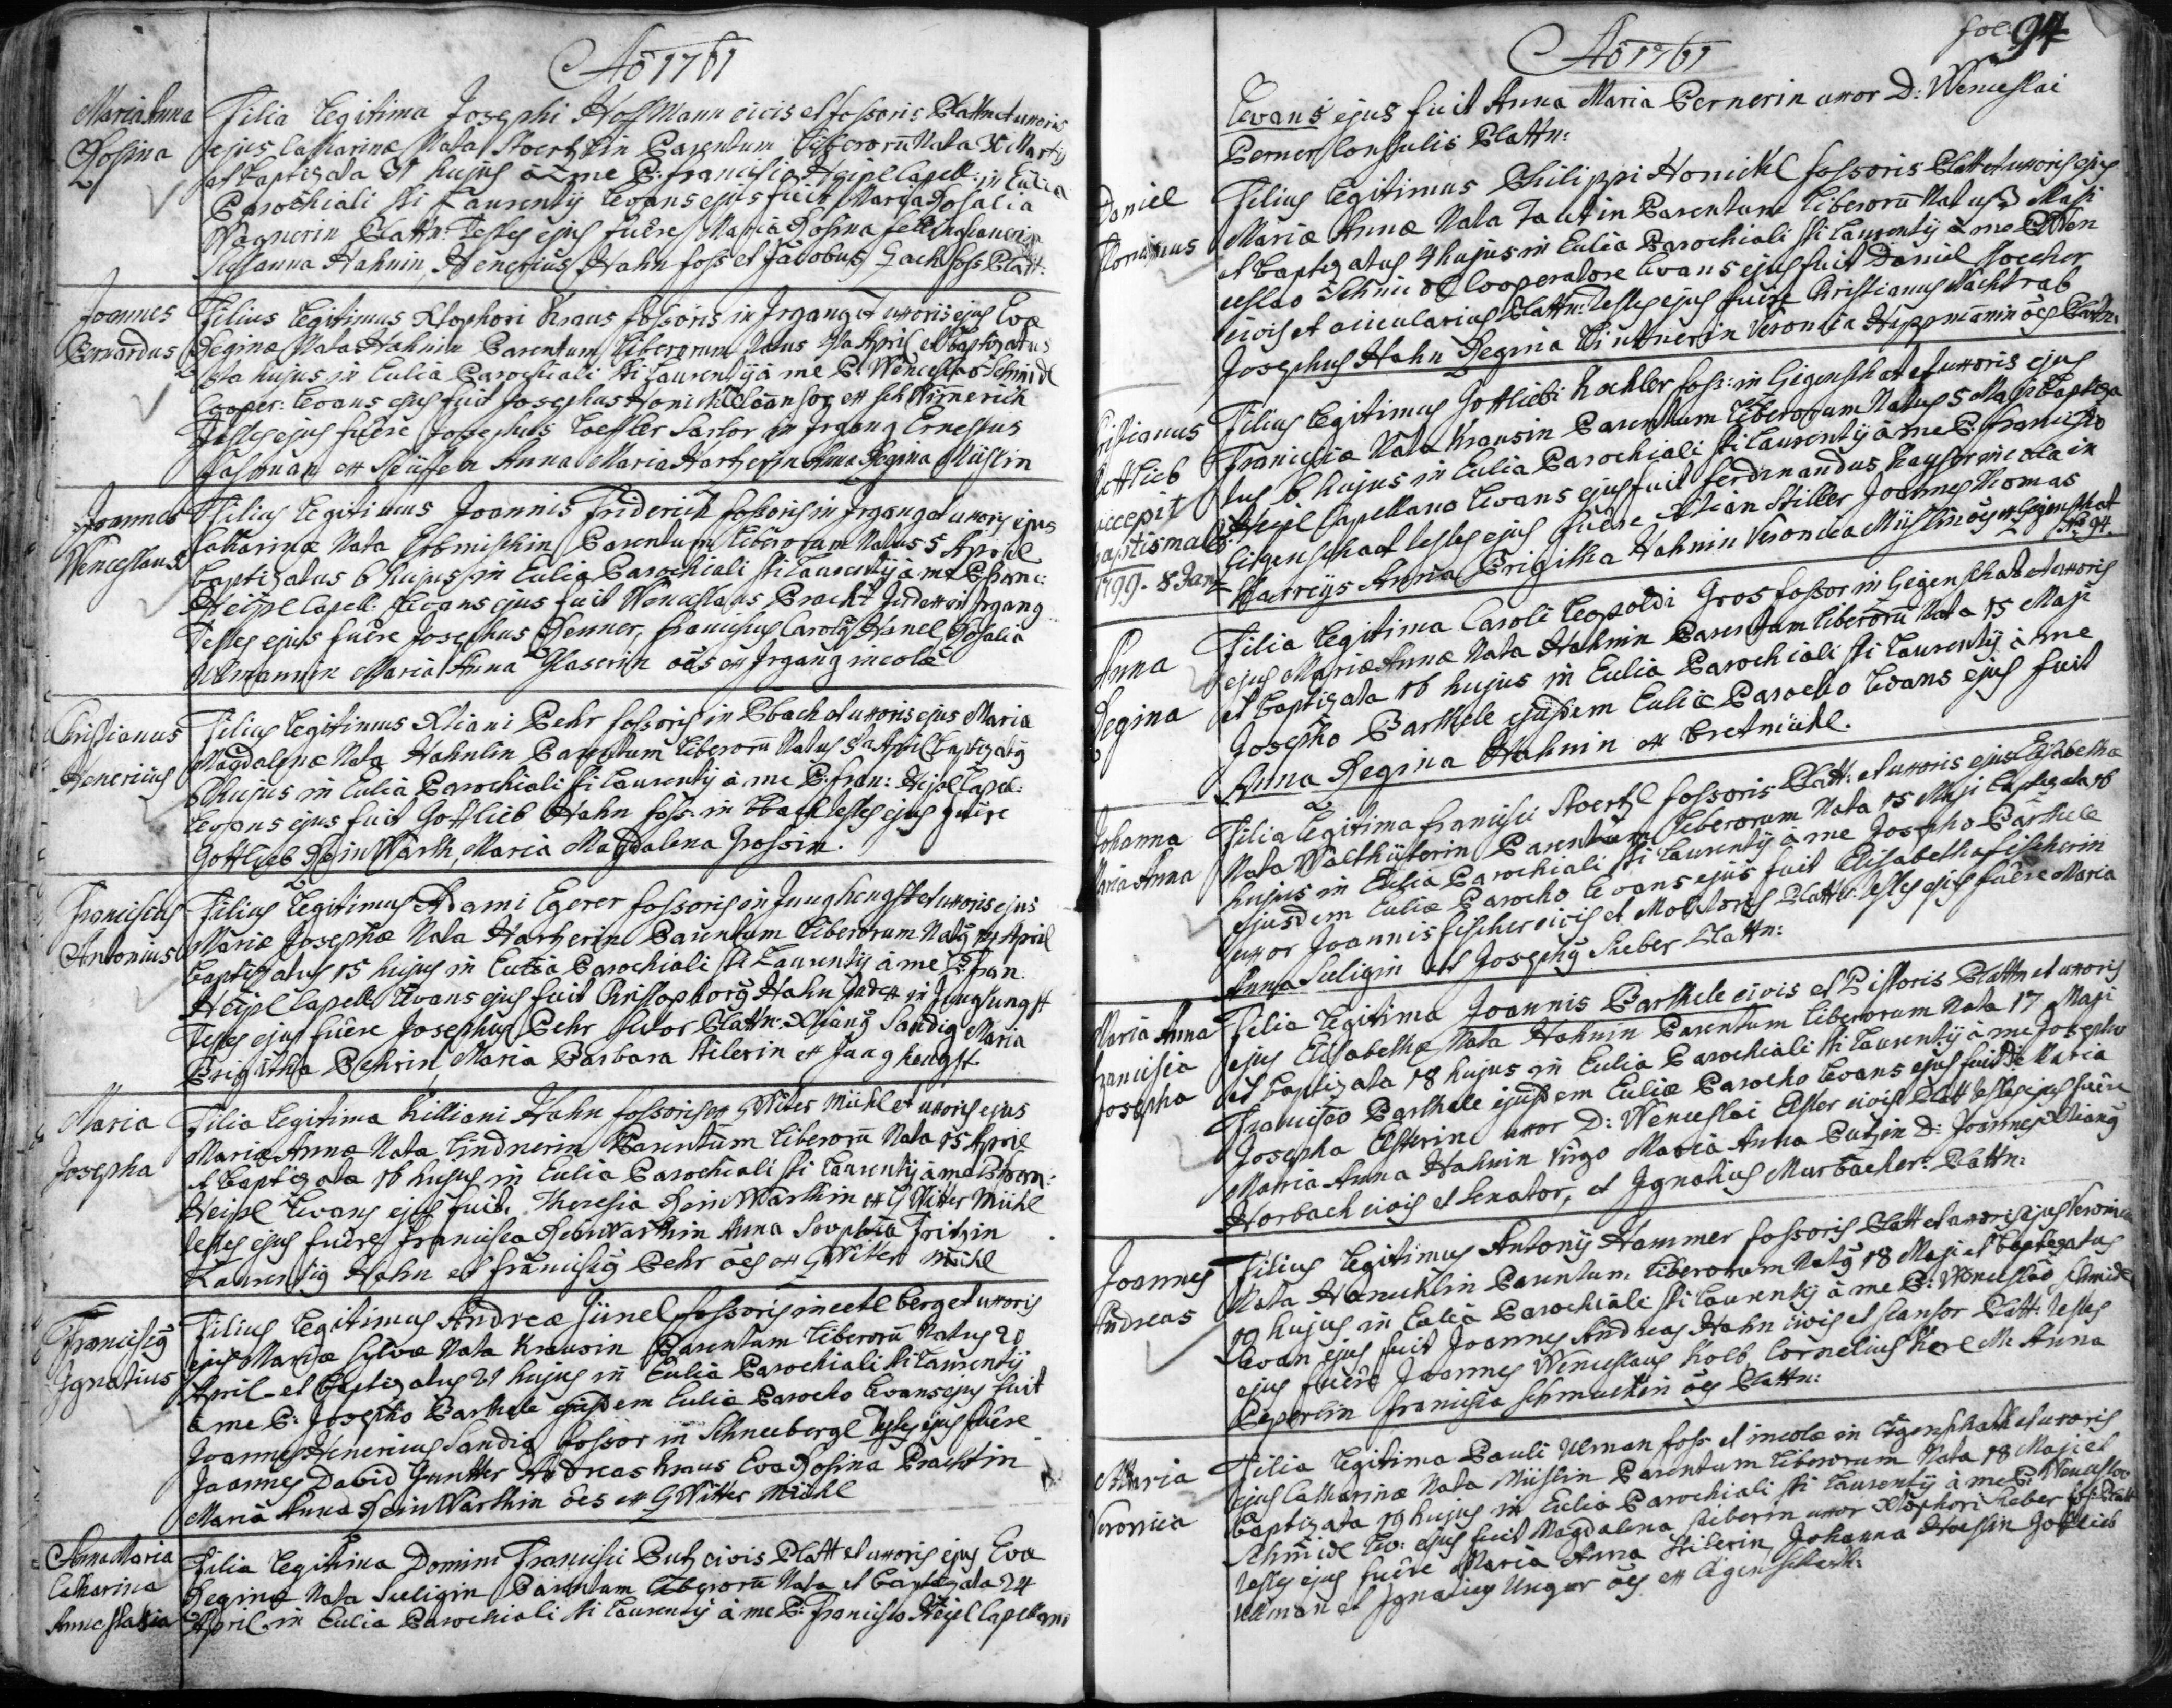 Aõ 1761
Maria Anna
Rosina
Filia Legitima Josephi Hoffmann civis et fossoris Plattn et uxoris
ejus Catharinæ Nata Stoertzlin Parentum Liberorũ Nata 30 Marty
et baptizata 31 hujus à me P: Francisco Heipl Capell: in Eulia
Parochiali Sti Laurentij Levans ejus fuit Maria Rosalia
Wagnerin Plattn: Testes ejus fuêre Maria Rosina
Sussanna Hahnin, Henericus Hahn foss et Jacobus Zach foss Platt:
Joannes
Bernardus
Filius Legitimus Xtophori Kraus fossoris in Irgang et uxoris ejus Eva
Reginæ Nata Hahnin Parentum Liberorum Natus April et baptizatus
hujus in Eulia Parochiali Sti Laurentij à me P: Wenceslao Schmidl
Cooper: Levans ejus fuit Josephus Honickl
Testes ejus fuêre Josephus Loessler Sartor in Irgang Ernestus
Anna Maria Hartzerin Anna Regina Müslin
Joannes
Wenceslaus
Filius Legitimus Joannis Friderich fossoris in Irgang et uxoris ejus
Catharinæ Nata Parentum Liberorum Natus 5 April
baptizatus 6 hujus in Eulia Parochiali Sti Laurentij à me P: Franc:
Heipl Capell: Levans ejus fuit Wenceslaus Pracht Irgang
Testes ejus fuêre Josephus Renner, Franciscus Caroly Hanel Rosalia
Ullmannin Maria Anna Glaserin oẽs ex Irgang incolæ
Christianus
Henericus
Filius Legitimus Xtiani Pehr fossoris in Pbach et uxoris ejus Maria
Magdalenæ Nata Hahnlin Parentum Liberorũ Natus 5ta April baptizatus
6 hujus in Eulia Parochiali Sti Laurentij à me P: Fran: Heipl Capell:
Levans ejus fuit Gottlieb Hahn foss: in Pbach testes ejus fuêre
Gottlieb ReinWarth, Maria Magdalena Grossin.
Franciscus
Antonius
Filius Legitimus Adami Egerer fossoris in Junghengst et uxoris ejus
Mariæ Josephæ Nata Hartzerin Parentum Liberorum Natus 14 April
baptizatus 15 hujus in Eulia Parochiali Sti Laurentij à me P: Fran
Heipl Capell Levans ejus fuit Christophorus Hahn in Junghengst
Testes ejus fuêre Josephus Pehr Sutor Plattn: Xtianus Sandig Maria
Brigitha Pehrin, Maria Barbara Stilerin ex Junghengst.
Maria
Josepha
Filia Legitima Killiani Hahn fossoris ex GWitter Mühl et uxoris ejus
Mariæ Annæ Nata Lindnerin Parentum Liberorũ Nata 15 April
et baptizata 16 hujus in Eulia Parochiali Sti Laurentij à me P: Fran:
Heipl Levans ejus fuit Theresia ReinWarthin ex GWitter Mühl
testes ejus fuêre Francisca ReinWarthin Anna Sophia Fritzin
Laurentius Hahn et Franciscus Pehr oẽs ex GWitter Mühl
Franciscus
Ignatius
Filius Legitimus Andreæ Günel fossoris in et uxoris
ejus Mariæ Evæ Nata Krausin Parentum Liberorũ Natus 20
April et baptizatus 21 hujus in Eulia Parochiali Sti Laurentij
à me P: Josepho Barthele ejusdem Eulia Parocho Levans ejus fuit
Joannes Henericus Sandig fossor in Schneebergl Testes ejus fuêre
Joannes David Guntter Andreas Kraus Eva Rosina Prachtin
Maria Anna ReinWarthin oẽs ex GWitter Mühl
Anna Maria
Catharina
Annastasia
Filia Legitima Domini Francisci Putz civis Platt et uxoris ejus Eva
Reginæ Nata Seeligin Parentum Liberorũ Nata et baptizata 24
April in Eulia Parochiali Sti Laurentij à me P: Francisco Heipl Capellano
fol: 94
Aõ 1761
Levans ejus fuit Anna Maria Pernerin uxor D: Wenceslai
Perner Consulis Plattn:
Daniel
Filius Legitimus Philippi Honickl fossoris Platt et uxoris ejus
Mariæ Annæ Nata Tautin Parentum Liberorũ Natus 3 Maji
et baptizatus 4 hujus in Eulia Parochiali Sti Laurentij à me P: Wen
ceslao Schmidl Cooperatore Levans ejus fuit Daniel Stoecker
civis et acicularius Plattn: Testes ejus fuêre Christianus Nachtrab
Josephus Hahn Regina Veronica oẽs Plattn:
Christianus
Gottlieb
accepit
baptismale
1799. 8 Jan
Filius Legitimus Gottliebi Kochler foss: in Gegenschat et uxoris ejus
Franciscæ Nata Krausin Parentum Liberorum Natus 5 Maji baptiza
tus 6 hujus in Eulia Parochiali Sti Laurentij à me P: Francisco
Heipl Capellano Levans ejus fuit Ferdinandus incola in
Gegenschat testes ejus fuêre Xtian Stiller Joannes Thomas
Anna Brigitha Hahnin Veronica Müslin oẽs ex Gegenschat
No: 94.
Anna
Regina
Filia Legitima Caroli Leopoldi Gros fossor in Gegenschat et uxoris
ejus Mariæ Annæ Nata Hahnin Parentum Liberorũ Nata 15 Maji
et baptizata 16 hujus in Eulia Parochiali Sti Laurentij à me
Josepho Barthele ejusdem Eulia Parocho Levans ejus fuit
Anna Regina Hahnin ex Bretmühl.
Johanna
Maria Anna
Filia Legitima Francisci Stoertzl fossoris Platt: et uxoris ejus Elisabethæ
Nata Walthüterin Parentum Liberorum Nata 15 Maji baptizata 16
hujus in Eulia Parochiali Sti Laurentij à me Josepho Barthele
Ejusdem Euliæ Parocho Levans ejus fuit Elisabetha Fischerin
uxor Joannis Fischer civis et Molitoris Plattn: testes ejus fuêre Maria
Anna Seeligin et Josephus Sieber Plattn:
Maria Anna
Francisca
Josepha
Filia Legitima Joannis Barthele civis et Pistoris Plattn et uxoris
ejus Elisabethæ Nata Hahnin Parentum Liberorum Nata 17 Maji
et baptizata 18 hujus in Eulia Parochiali Sti Laurentij à me Josepho
Francisco Barthele ejusdem Euliæ Parocho Levans ejus fuit D: Maria
Josepha Elsterin uxor D: Wenceslai Elster civis Platt testes ejus fuêre
Maria Anna Hahnin Virgo Maria Anna Putzin D: Joannes Xtianus
Horbach civis et Senator, et Ignatius Murbacher: Plattn:
Joannes
Andreas
Filius Legitimus Antonij Hammer fossoris Platt et uxoris ejus Veronica
Nata Honicklin Parentum Liberorum Natus 18 Maji et baptizatus
19 hujus in Eulia Parochiali Sti Laurentij à me P: Wenceslao Schmidl
Levan ejus fuit Joannes Andreas Hahn civis et Platt: testes
ejus fuêre Joannes Wenceslaus Kolb, Cornelius M: Anna
Peperlin Francisca Schmuckin oẽs Plattn:
Maria
Veronica
Filia Legitima Pauli Ulman foss et incolæ in Gegenschat et uxoris
ejus Catharinæ Nata Müslin Parentum Liberorum Nata 18 Maji et
baptizata 19 hujus in Eulia Parochiali Sti Laurentij à me P: Wenceslao
Schmidl Lev: ejus fuit Magdalena Sieberin uxor Xtophori Sieber foss Platt
testes ejus fuêre Maria Anna Stilerin Johanna Gottlieb
Ullman et Ignatius Unger oẽs ex Gegenschat: